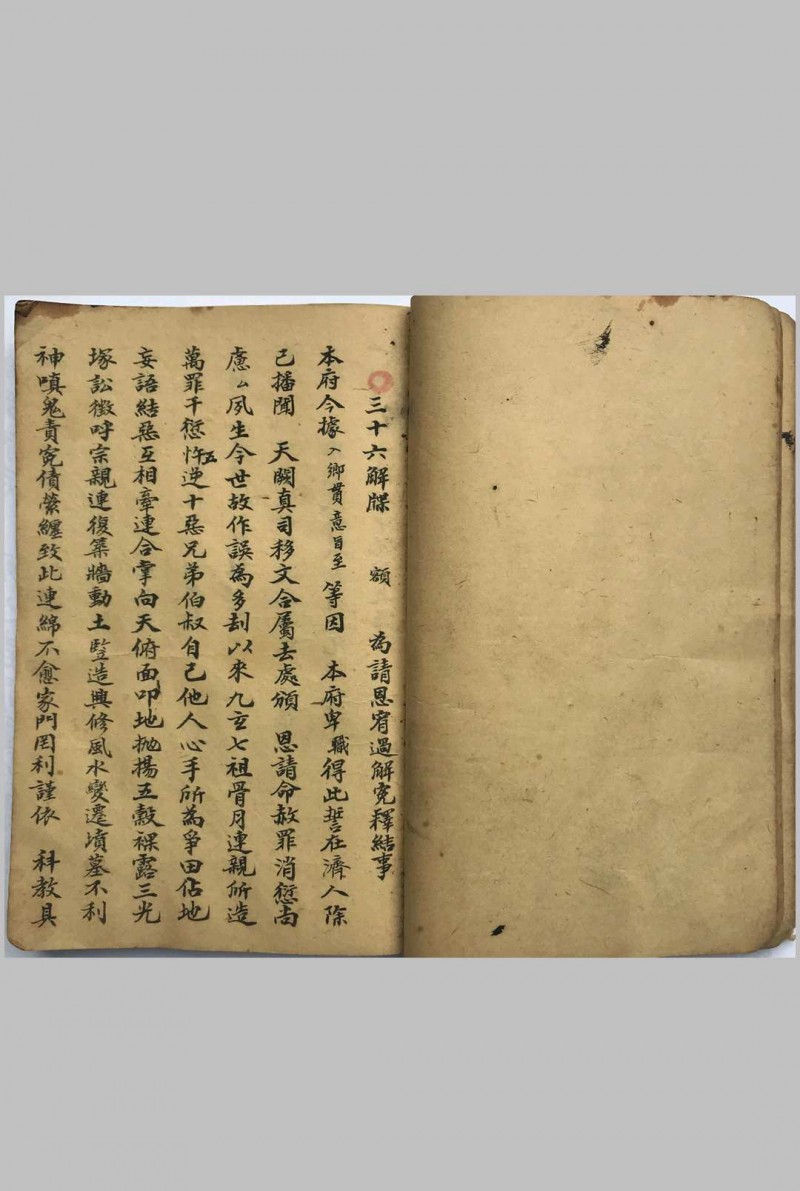 三十六解牒　額　為請恩宥過解寃釋結事
本府今據入鄉貫意旨至等因　本府卑職得此誓在濟人除
已播聞　天闕真司移文合屬去處頒　恩請命赦罪消愆尚
慮厶夙生今世故作誤為多刼以來九玄七祖骨月連親所造
萬罪千愆五忤逆十惡兄弟伯叔自己他人心手所為爭田佔地
妄語結惡互相牽連合掌向天俯面叩地拋揚五穀裸露三光
塚訟徵呼宗親連復築牆動土豎造興修風水變遷墳墓不利
神嗔鬼責寃債縈纏致此連綿不愈家門罔利謹依　科教具